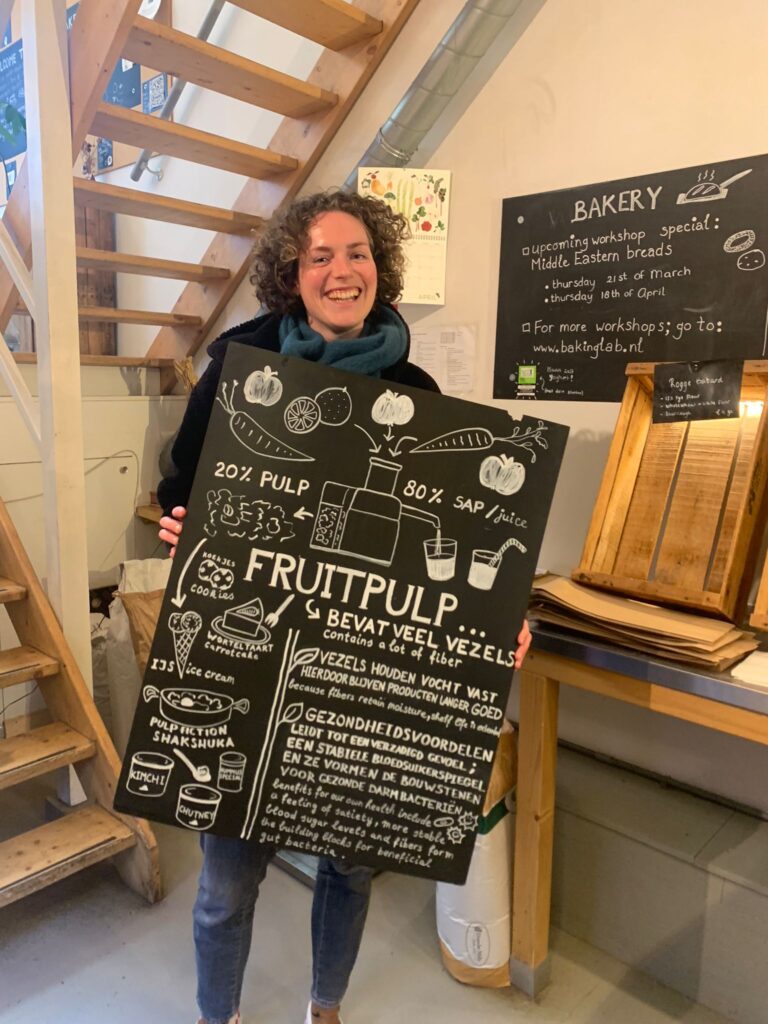 BAKERY
upcoming workshop special:
Middle Eastern breads
• thursday 21st of March
• thursday 18th of April
For more workshops; go to:
www.bakinglab.nl
Rogge
20% PULP
80% SAP/juice
FRUITPULP...
BEVAT VEEL VEZELS
contains a lot of fiber
KOEKJES
COOKIES
WORTELTAART
carrotcake
IJS ice cream
PULP FICTION
SHAKSHUKA
KIMCHI
CHUTNEY
VEZELS HOUDEN VOCHT VAST
HIERDOOR BLIJVEN PRODUCTEN LANGER GOED
because fibers retain moisture, shelf life is extended
GEZONDHEIDSVOORDELEN
LEIDT TOT EEN VERZADIGD GEVOEL;
EEN STABIELE BLOEDSUIKERSPIEGEL
EN ZE VORMEN DE BOUWSTENEN
VOOR GEZONDE DARMBACTERIËN
benefits for our own health include
a feeling of satiety, more stable
blood sugar levels and fibers form
the building blocks for beneficial
gut bacteria.